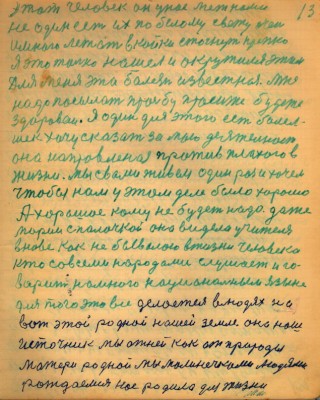 13
этот человек он у нас
не один есть их по белому свету
много лежат в койки стогнут крепко
Я это точно нашел и окружился этим
Для меня эта болезнь известная. Мне
надо посылать прозьбу просите будете
здоровы. Я один для этого есть
хочу сказать за мою деятелность
она направленая против плахого в
жизни. Мы свами живем один раз и хочем
чтобы нам у этом деле было хорошо
А хорошае кому не будет надо. даже
она видела учителя
внове как не бывалого в жизни человека
кто со всеми народами слушает и го-
варит, полного национальным языке
для того это все делается в людях на
вот этой родной нашей земле она наш
источник мы от ней как от природы
матери родной мы малинечкими людями
рождаемся нас родила для жизни